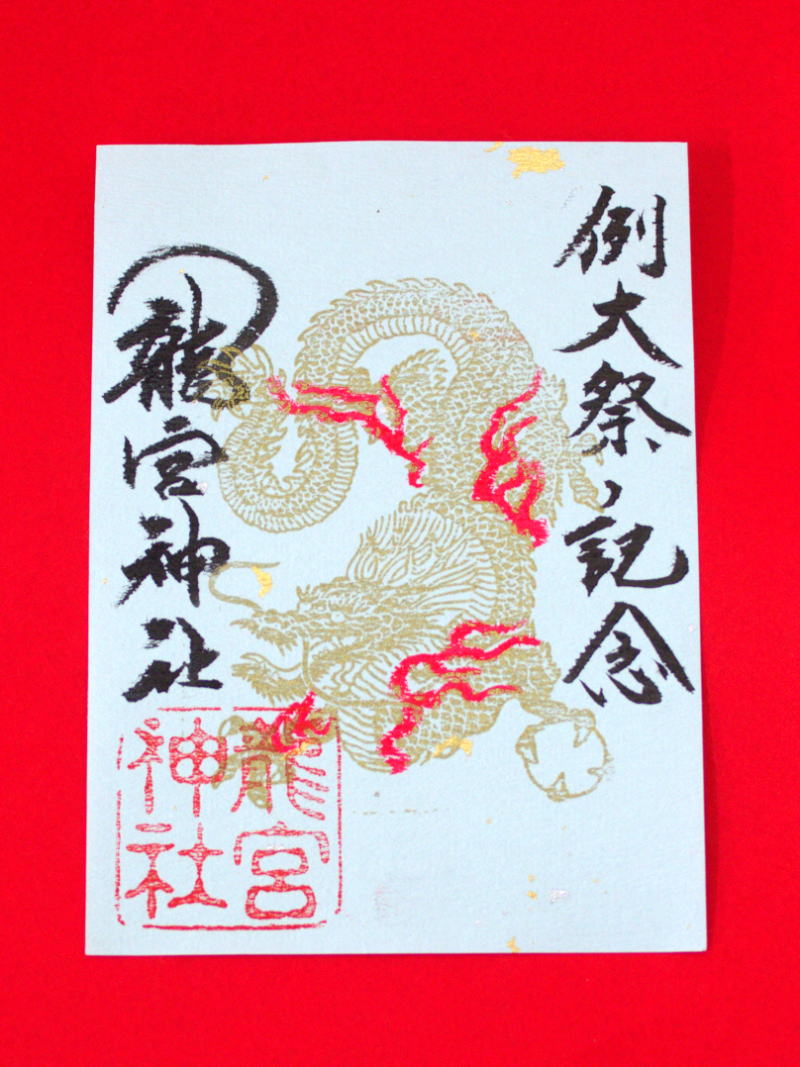 例大祭ノ記念
龍宮神社
龍宮
神社